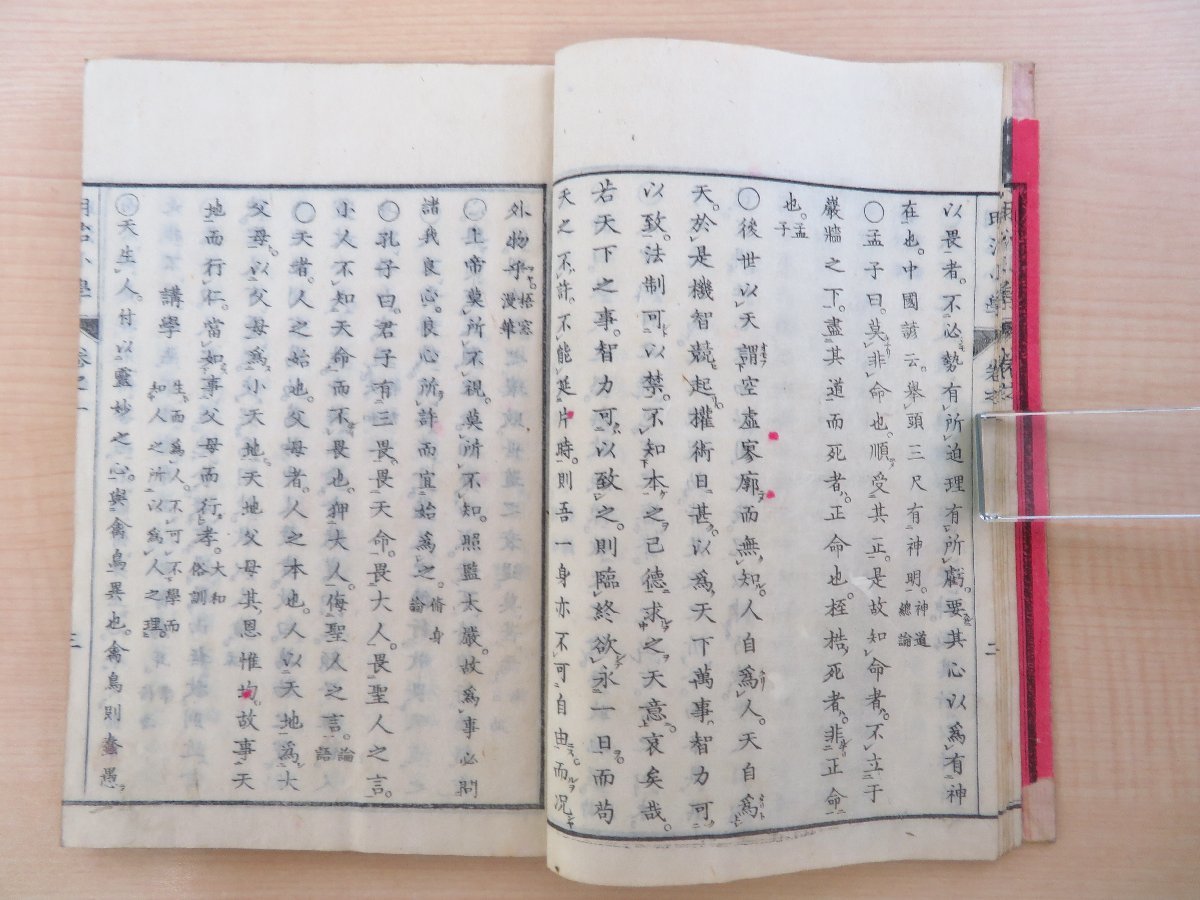 以畏者。不必勢有所迫理有所虧。要其心以爲有神
在也。中國諺云。擧頭三尺有神明。神道總論
〇孟子曰。莫非命也。順受其正。是故知命者。不立于
嚴牆之下。盡其道而死者。正命也。桎梏死者。非正命
也。孟子
〇後世以天謂空虛寥廓而無知。人自爲人。天自爲
天。於是機智競起。權術日甚。以爲天下萬事。智力可
以致。法制可以禁。不知本之己德。求之天意。哀矣哉。
若天下之事。智力可以致之。則臨終欲永一日。而苟
天之不許。不能延片時。則吾一身亦不可自由。而况
外物乎。梧窓漫筆
〇上帝莫所不視。莫所不知。照監太嚴。故爲事必問
諸我良心。良心所許而宜始爲之。脩身論
〇孔子曰。君子有三畏。畏天命。畏大人。畏聖人之言。
小人不知天命而不畏也。狎大人。侮聖人之言。論語
〇天者。人之始也。父母者。人之本也。人以天地爲大
父母。以父母爲小天地。天地父母其恩惟均。故事天
地而行仁。當如事父母而行孝。大和俗訓
講學 生而爲人。不可不學而知人之所以爲人之理。
〇天生人。付以靈妙之心。與禽鳥異也。禽鳥則蠢愚
明治小學 卷之一
二
三